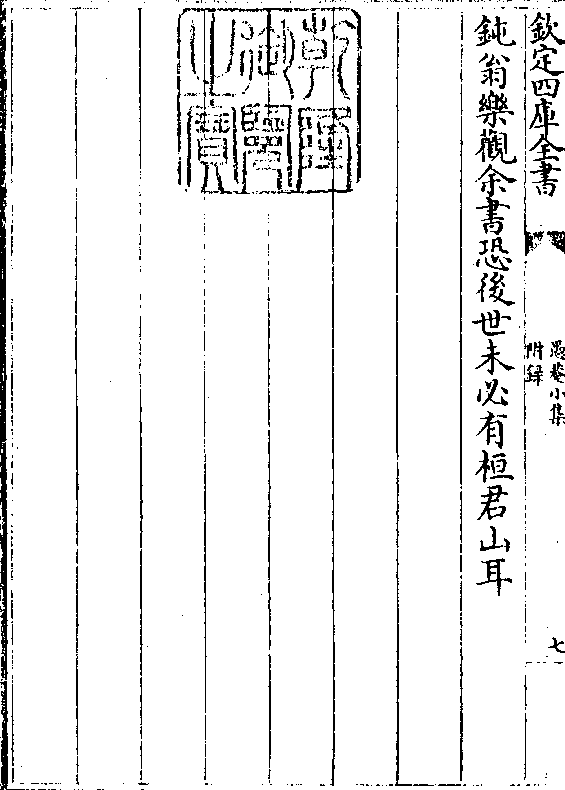 欽定四庫全書
愚菴小集
附録
七
鈍翁樂觀余書恐後世未必有桓君山耳
乾隆
御覽
之寶